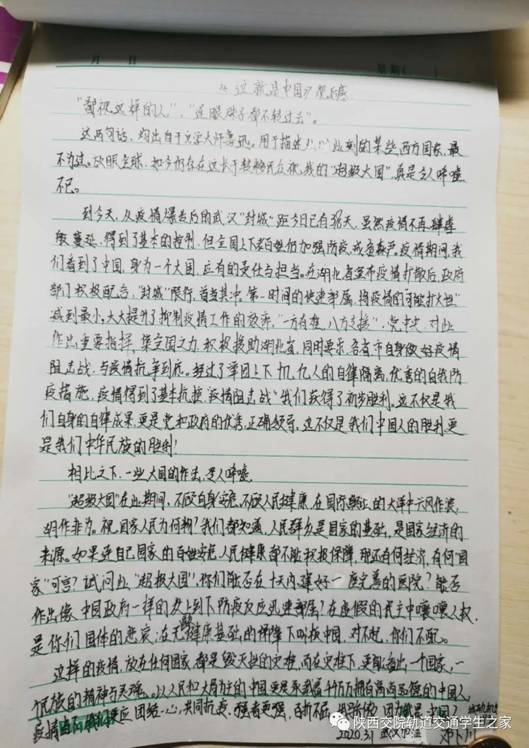 《这就是中国》观后感
"鄙视这样的人"，"连眼珠子都不转过去"。
这两句话，均出自于文学大师鲁迅。用于描述 此刻的某些西方国家，最
不为过。放眼全球，
不已。
到今天，从疫情爆发后的武汉"封城"距今日已有38天，虽然疫情不再肆虐
般蔓延，得到了基本的控制，但全国上下老百姓仍加强防疫戒备森严。疫情期间，我
们看到了中国，身为一个大国，应有的责任与担当。在湖北省宣布疫情打响后，政府
部门积极配合，"封城"限行，首当其冲，第一时间的快速部属，将疫情的可能扩大性
减到最小，大大提升了抑制疫情工作的效率，"一方有难，八方支援"，党中央，对此
作出重要指挥，集全国之力，积极援助湖北省，同时要求各省市自身做好疫情
阻击战，与疫情抗争到底。经过了举国上下 亿人的自律隔离，优秀的自我防
疫措施，疫情得到了基本抗控，"疫情阻击战"我们获得了初步胜利。这不仅是我
们自身的自律成果，更是党和政府的优秀，正确领导。这不仅是我们中国人的胜利，更
是我们中华民族的胜利！
相比之下，一些大国的作法，令人唏嘘。
"超级大国"在此期间，不顾自身安危，不顾人民健康，在国际舆论的大洋中兴风作浪，
胡作非为。视国家人民为何物？我们都知道，人民群众是国家的基础，是国家经济的
来源。如果连自己国家的百姓安危，人民健康都不能积极保障，那还有何经济，有何"国
家"可言？试问此"超级大国"，你们能否在十天内建好一座完善的医院？能否
作出像中国政府一样的久上到下防疫反应迅速部属？在虚假的民主中嚷嚷人权，
是你们国体的悲哀；在无健康基础的保障下叫板中国，对不起，你们不配。
这样的疫情，放在任何国家，都是毁灭性的灾难，而在灾难下，更能看出一个国家，一
民族的精神与灵魂。以人民和大局为主的中国
疫情 团结一心，共同抗疫，
2020.3.1 武汉加油
陕西交院轨道交通学生之家